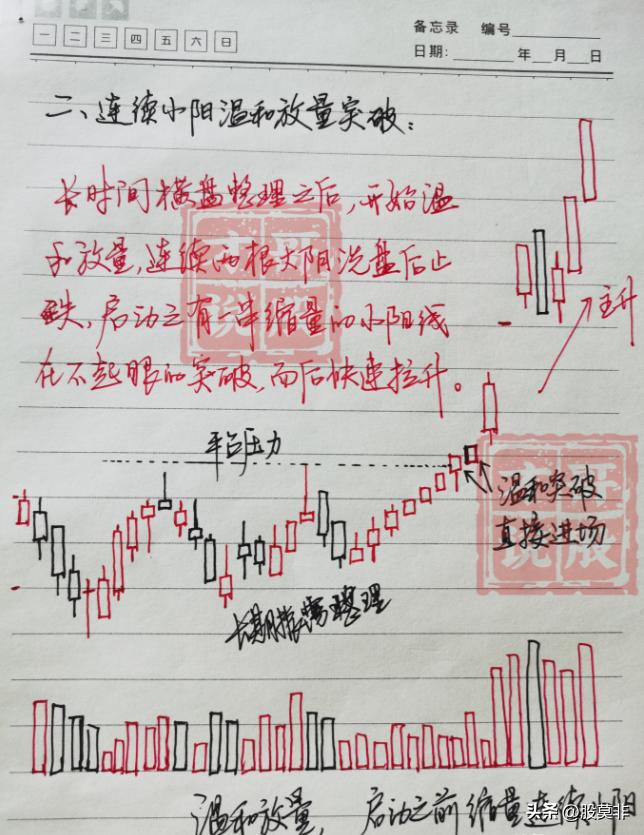 备忘录 编号
一 二 三 四 五 六 日
日期: 年 月 日
二、连续小阳温和放量突破：
长时间横盘整理之后，开始温
和放量，连续两根大阴洗盘后止
跌，启动之有一串缩量的小阳线
在不起眼的突破，而后快速拉升。
主升
平台压力
温和突破
直接进场
长期震荡整理
温和放量，启动之前缩量连续小阳
头条 @股莫非